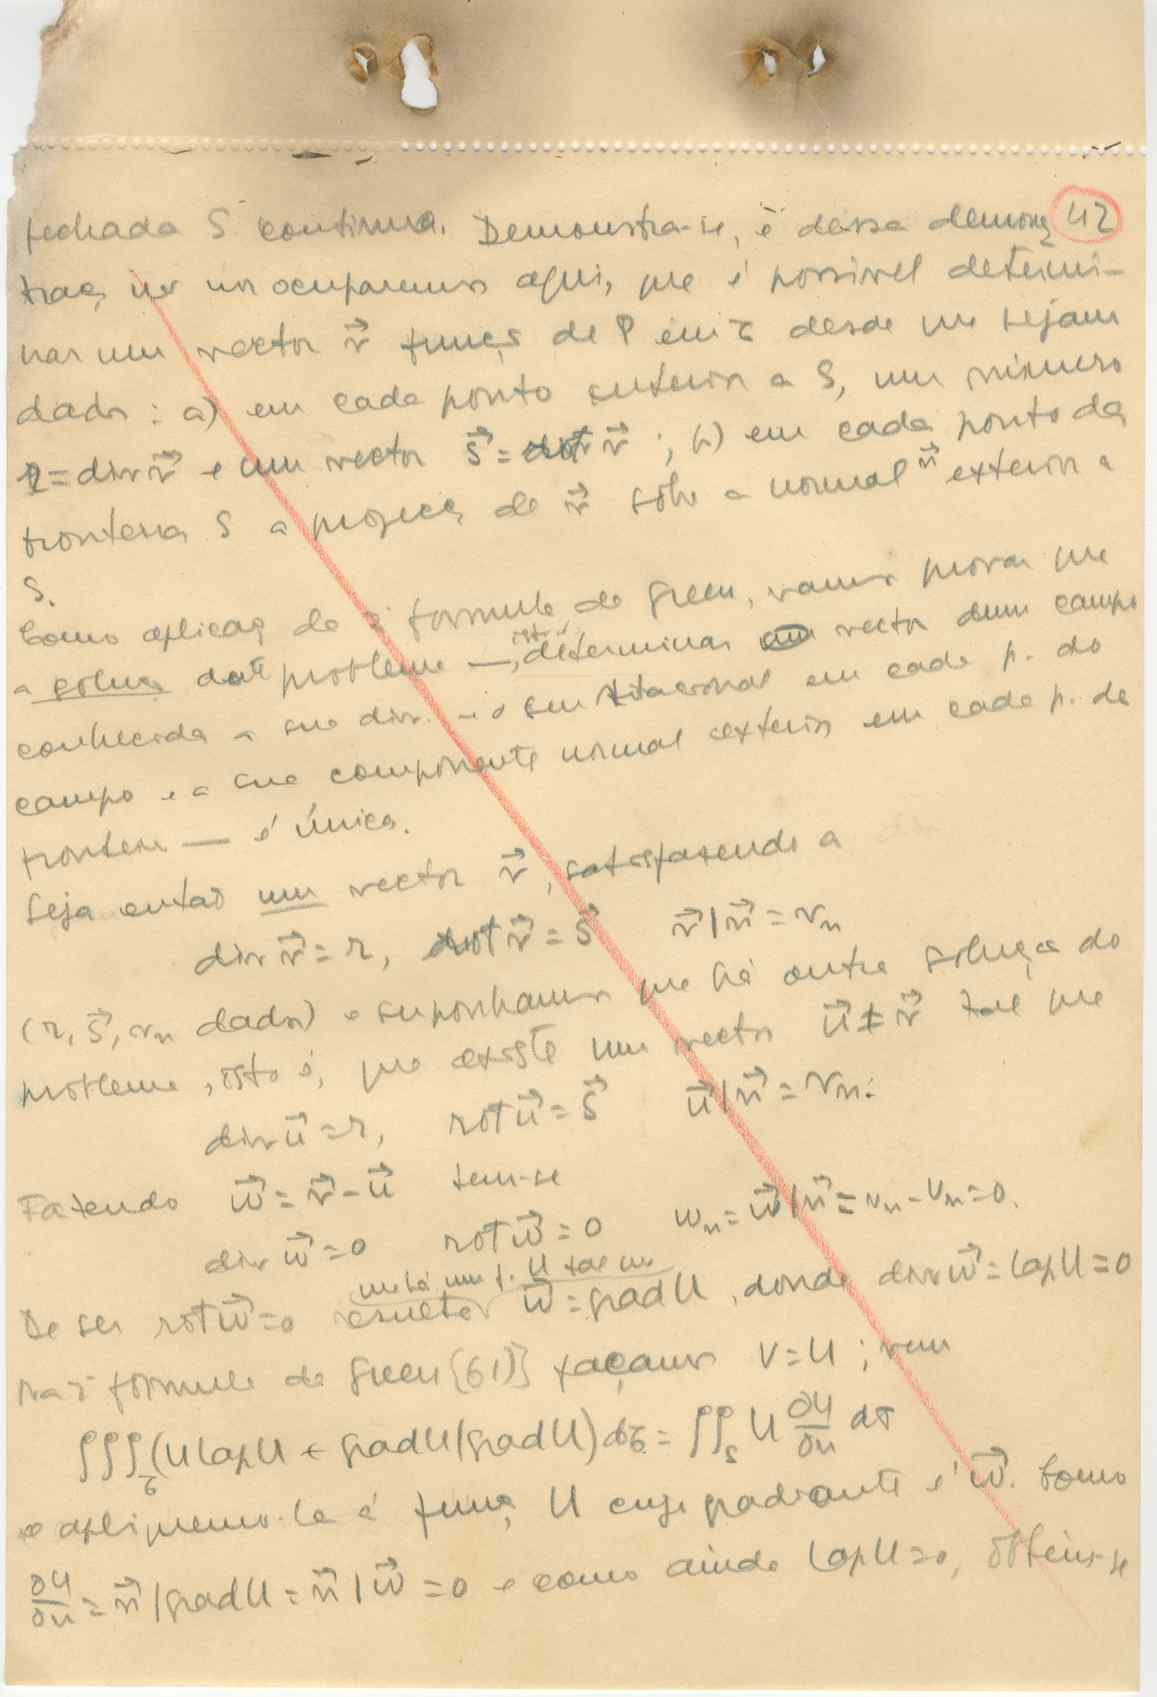 fechada S contínua. Demonstra-se, e dessa demons 42
traç não nos ocuparemos aqui, que é possível determi-
nar um vector v⃗ funç de P em τ desde que sejam
dados: a) em cada ponto interior a S, um número
r = div v⃗ e um vector s⃗ = rot v⃗ ; b) em cada ponto da
fronteira S a projecç de v⃗ sôbre a normal n⃗ exterior a
S.
Como aplicaç da 2ª formula de Green, vamos provar que
a soluç deste problema —, determinar vector dum campo
conhecida a sua div. e o seu rotacional em cada p. do
campo e a sua componente normal exterior em cada p. da
fronteira — é única.
Seja então um vector v⃗, satisfazendo a
div v⃗ = r, rot v⃗ = s⃗ v⃗ | n⃗ = vn
(r, s⃗, vn dados) e suponhamos que há outra solução do
problema, isto é, que existe um vector u⃗ ≠ v⃗ tal que
div u⃗ = r, rot u⃗ = s⃗ u⃗ | n⃗ = vn:
Fazendo w⃗ = v⃗ - u⃗ tem-se
div w⃗ = 0 rot w⃗ = 0 wn = w⃗ | n⃗ = vn - vn = 0.
que há um f. U tal que
De ser rot w⃗ = 0 resulta w⃗ = grad U, donde div w⃗ = lap U = 0
Na formula de Green [61)] façamos V = U ; vem
∫∫∫τ (U lap U + grad U | grad U) dτ = ∫∫S U ∂U/∂n dσ
e apliquemo-la à funç U cujo gradiante é w⃗. Como
∂U/∂n = n⃗ | grad U = n⃗ | w⃗ = 0 e como ainda lap U = 0, obtem-se